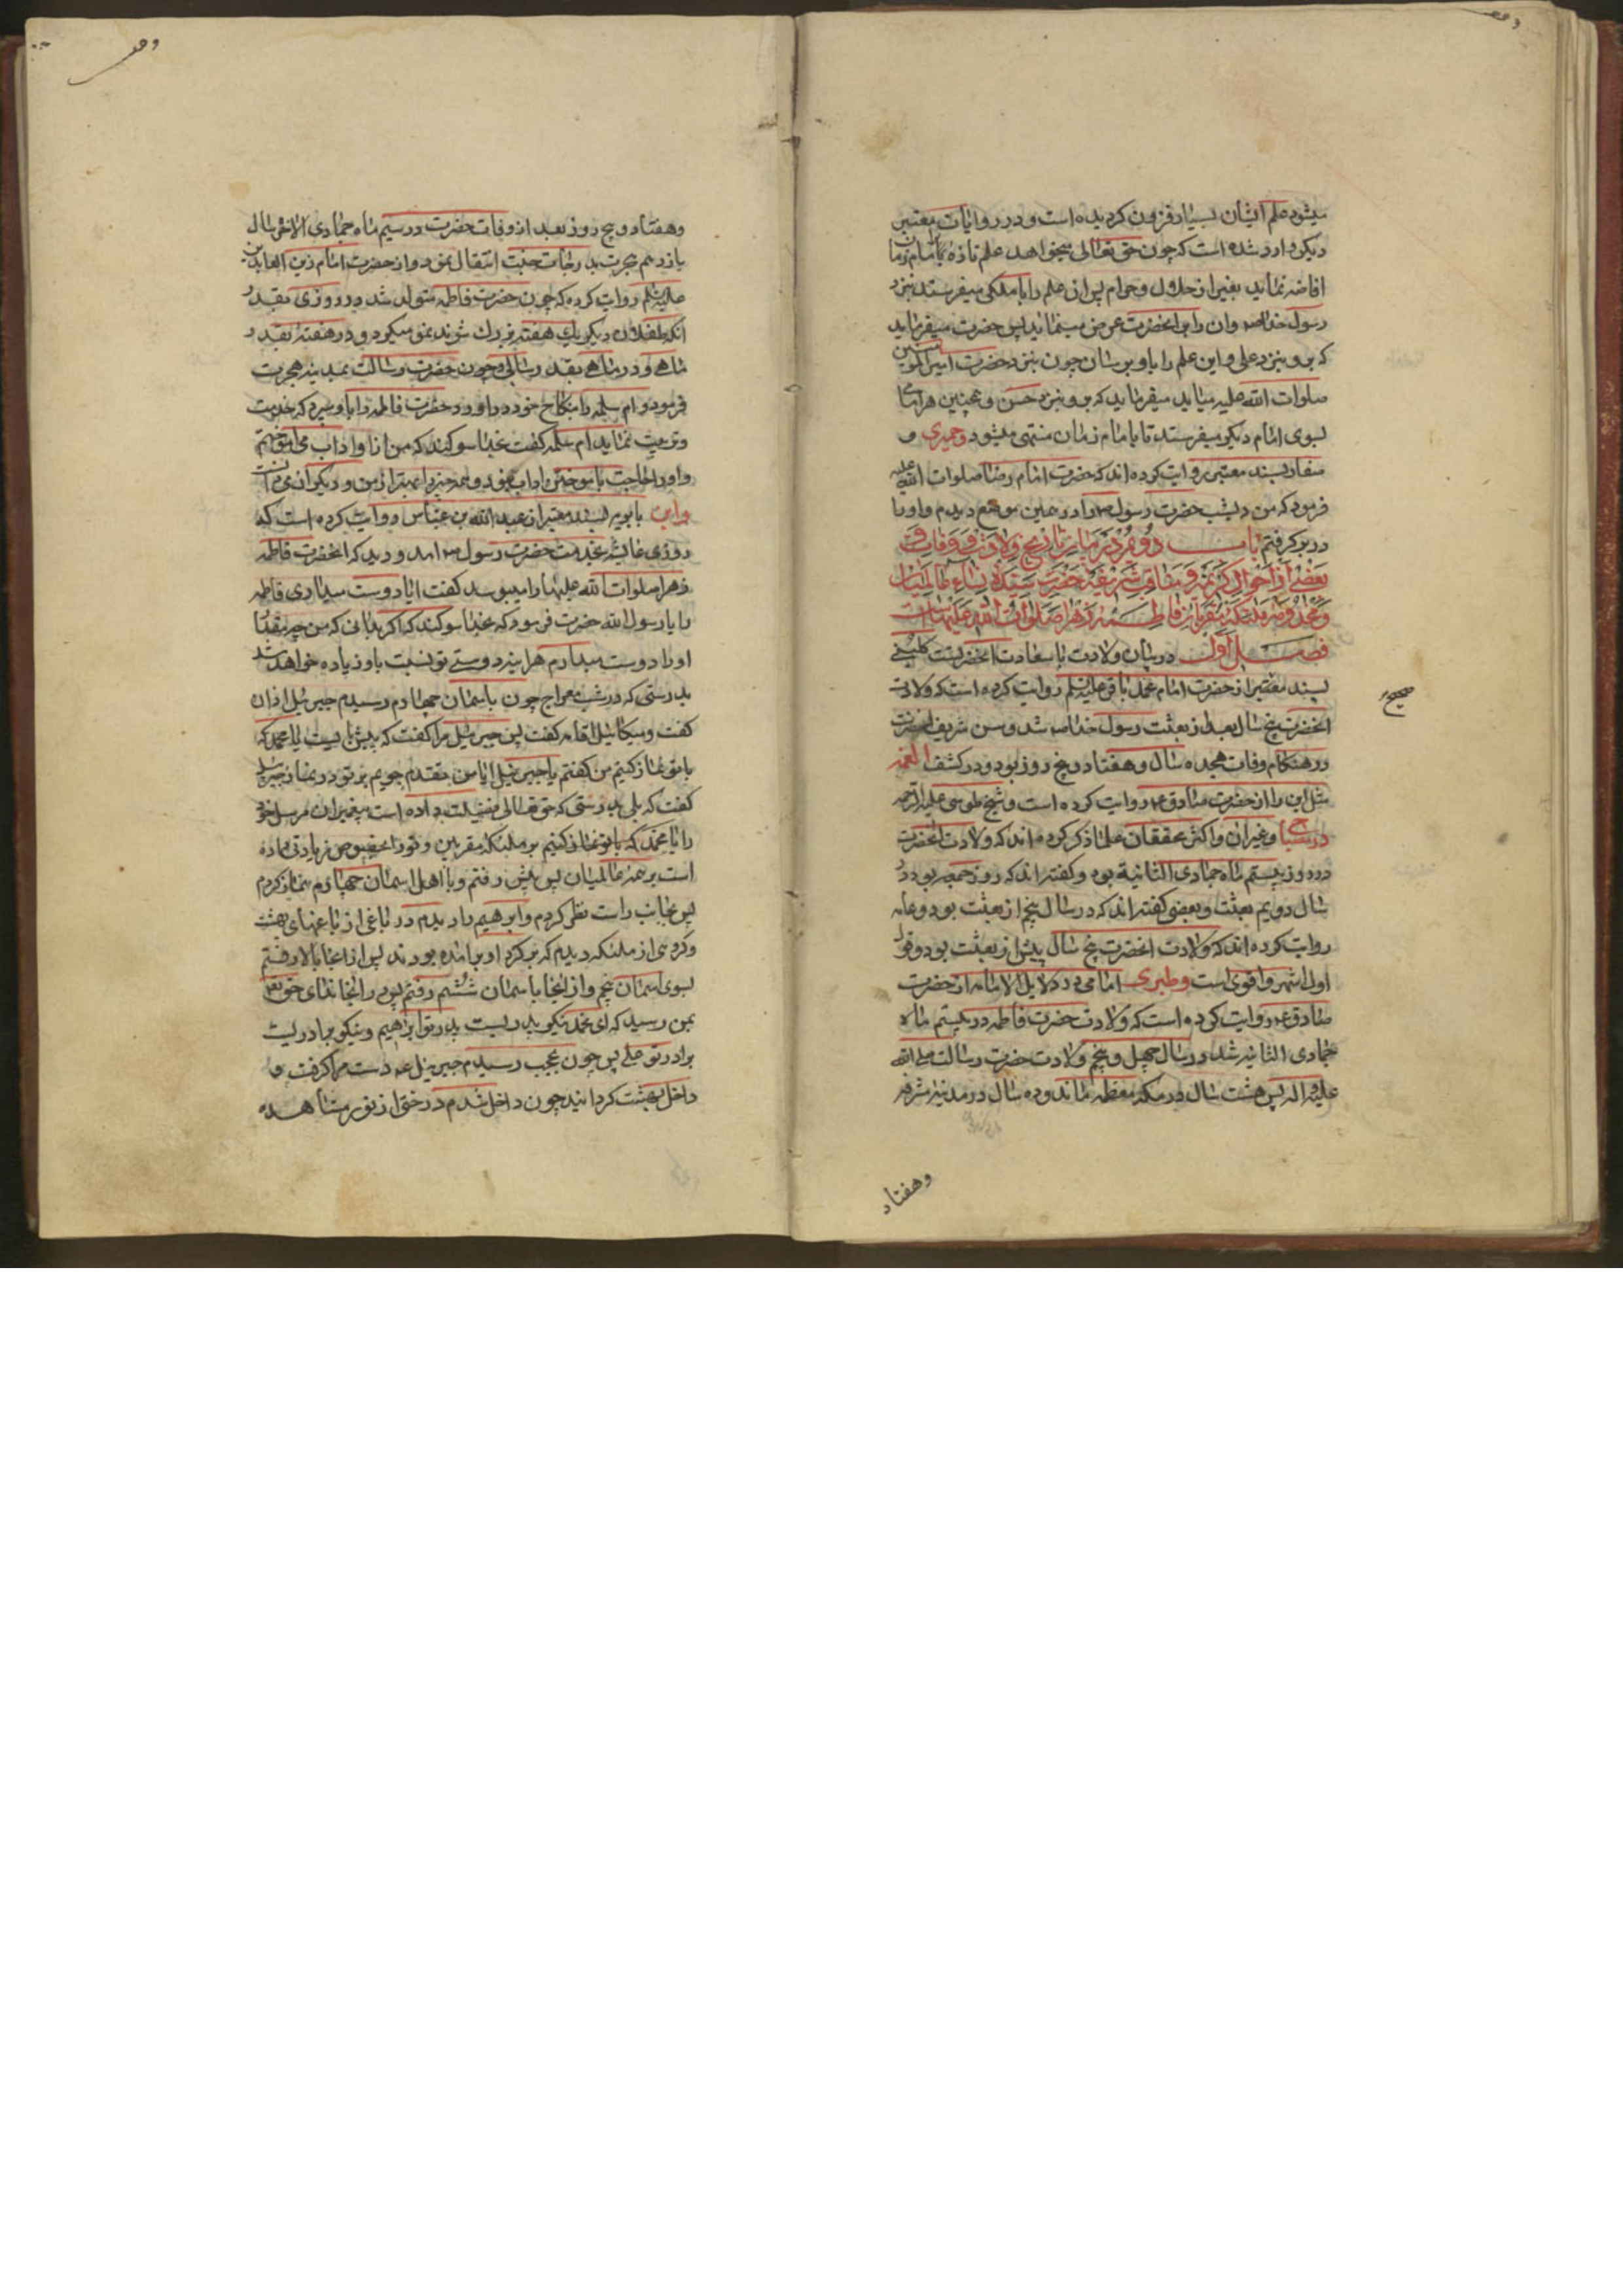 میشود علم ایشان بسیار فزون کردیده است و در روایات معتبر
دیکر وارد شده است که چون حق تعالی میخواهد علم تازه بامام زمان
افاضه نماید بغیر از حلال و حرام پس ان علم را با ملکی میفرستد بنزد
رسول خدا ص وان را بر انحضرت عرض مینماید پس حضرت میفرماید
که برو بنزد علی و این علم را باو برسان چون بنزد حضرت امیر المومنین
صلوات الله علیه میاید میفرماید که برو بنزد حسن و همچنین هر امامی
بسوی امام دیکر میفرستد تا بامام زمان منتهی میشود وحمیری و
صفار بسند معتبر روایت کرده اند که حضرت امام رضا صلوات الله علیه
فرمود که من دیشب حضرت رسول ص را در همین موضع دیدم و او را
در بر کرفتم باب دوم در بیان تاریخ ولادت و وفات و
بعضی از احوال کریمه و مناقب شریفه حضرت سیدة نساء عالمیان
و مخدومه ملائکه مقربان فاطمه زهرا صلوات الله علیها است
فصل اول در بیان ولادت با سعادت انحضرتست کلینی
بسند معتبر از حضرت امام محمد باقر علیه السلم روایت کرده است که ولادت
انحضرت پنج سال بعد از بعثت رسول خدا ص شد و سن شریف انحضرت
در هنکام وفات هجده سال و هفتاد و پنج روز بود و در کشف الغمه
مثل این را از حضرت صادق ع روایت کرده است و شیخ طوسی علیه الرحمه
در مصباح و غیر ان و اکثر محققان علما ذکر کرده اند که ولادت انحضرت
در روز بیستم ماه جمادی الثانیة بود و کفته اند که روز جمعه بود در
سال دویم بعثت و بعضی کفته اند که در سال پنجم از بعثت بود و عامه
روایت کرده اند که ولادت انحضرت پنج سال پیش از بعثت بود و قول
اول اشهر و اقوی است وطبری امامی در دلایل الامامه از حضرت
صادق ع روایت کرده است که ولادت حضرت فاطمه در بیستم ماه
جمادی الثانیه شد در سال چهل و پنجم ولادت حضرت رسالت صلی الله
علیه و اله پس هشت سال در مکه معظمه ماند و ده سال در مدینه مشرفه
صحیح
وهفتاد
وهفتاد و پنج روز بعد از وفات حضرت در سیم ماه جمادی الاخری سال
یازدهم هجرت بدرجات جنت انتقال نمود و از حضرت امام زین العابدین
علیه السلم روایت کرده که چون حضرت فاطمه متولد شد در روزی بقدر
انکه طفلان دیکر یک هفته بزرک شوند نمو میکرد و در هفته بقدر
ماهی و در ماهی بقدر سالی و چون حضرت رسالت بمدینه هجرت
فرمود و ام سلمه را بنکاح خود در اورد حضرت فاطمه را باو سپرد که خدمت
و تربیت نماید ام سلمه کفت بخدا سوکند که من او را اداب می اموختم
و او را حاجت باموختن اداب نبود و همه چیز را بهتر از من و دیکران میدانست
وابن بابویه بسند معتبر از عبد الله بن عباس روایت کرده است که
روزی عایشه بخدمت حضرت رسول ص امد و دید که انحضرت فاطمه
زهرا صلوات الله علیها را میبوسد کفت ایا دوست میداری فاطمه
را یا رسول الله حضرت فرمود که بخدا سوکند که اکر بدانی که من چه مقدار
او را دوست میدارم هراینه دوستی تو نسبت باو زیاده خواهد شد
بدرستی که در شب معراج چون باسمان چهارم رسیدم جبرئیل اذان
کفت و میکائیل اقامه کفت پس جبرئیل مرا کفت که پیش بایست یا محمد که
با تو نماز کنیم من کفتم یا جبرئیل ایا من مقدم جویم بر تو در نماز جبرئیل
کفت که بلی بدرستی که حق تعالی فضیلت داده است پیغمبران مرسل خود
را یا محمد که با تو نماز کنیم بر ملئکه مقربین و تو را بخصوص زیادتی داده
است بر همه عالمیان پس پیش رفتم و با اهل اسمان چهارم نماز کردم
پس بجانب راست نظر کردم و ابرهیم را دیدم در باغی از باغهای بهشت
و کروهی از ملئکه دیدم که بر کرد او بر امده بودند پس از انجا بالا رفتم
بسوی اسمان پنجم و از انجا باسمان ششم رفتم پس در انجا ندای حق تعالی
بمن رسید که ای محمد نیکو پدریست پدر تو ابراهیم و نیکو برادریست
برادر تو علی پس چون بحجب رسیدم جبرئیل ع دست مرا کرفت و
داخل بهشت کردانید چون داخل شدم درختی از نور مشاهده